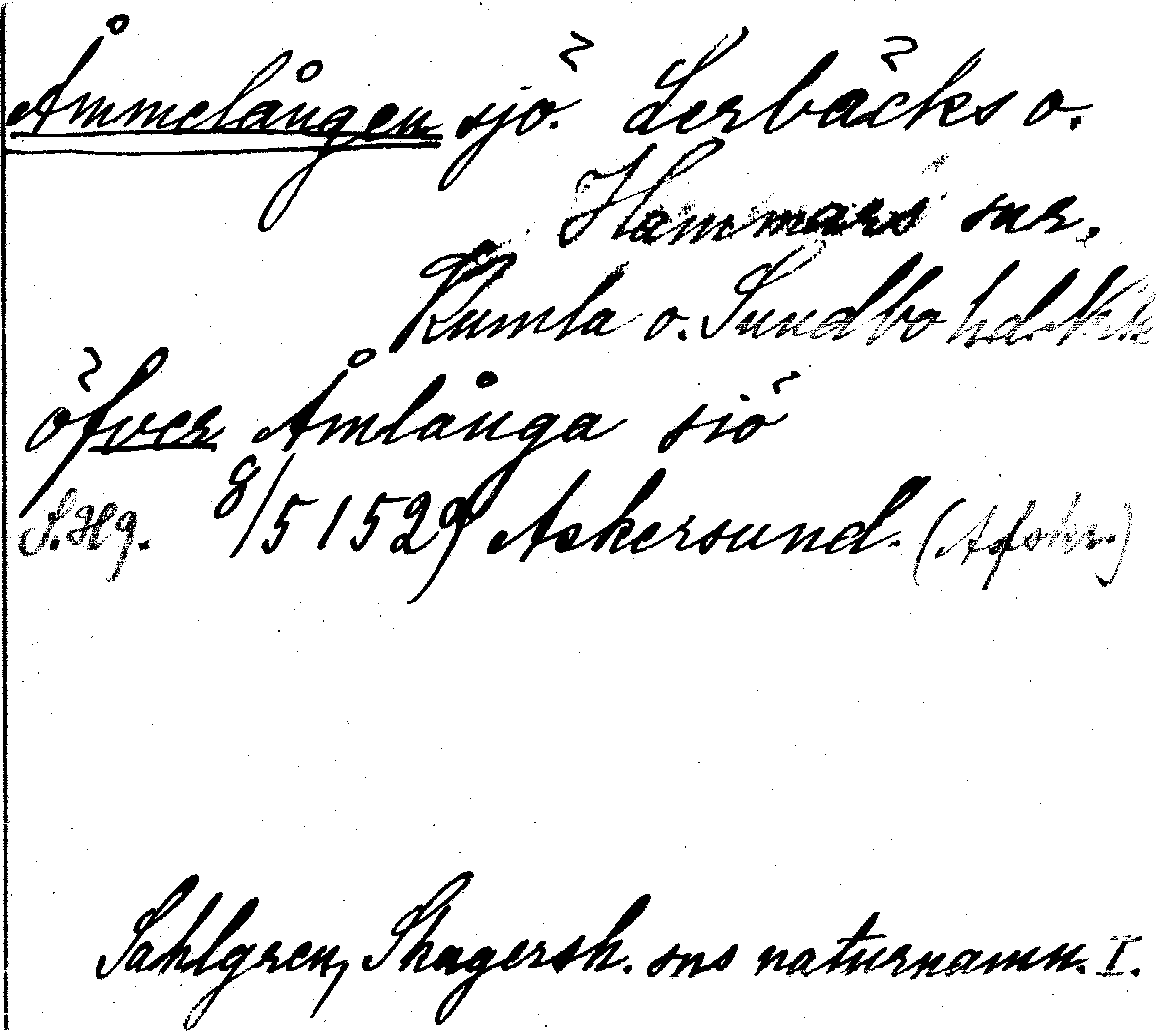 Åmmelången sjö. Lerbäcks o.
Hammars snr.
Kumla o. Sundbo hd.
öfver Åmlånga siö
S.Hg. 8/5 1529 Askersund. (Afskr.)
Sahlgren, Skagersh. sns naturnamn. I.